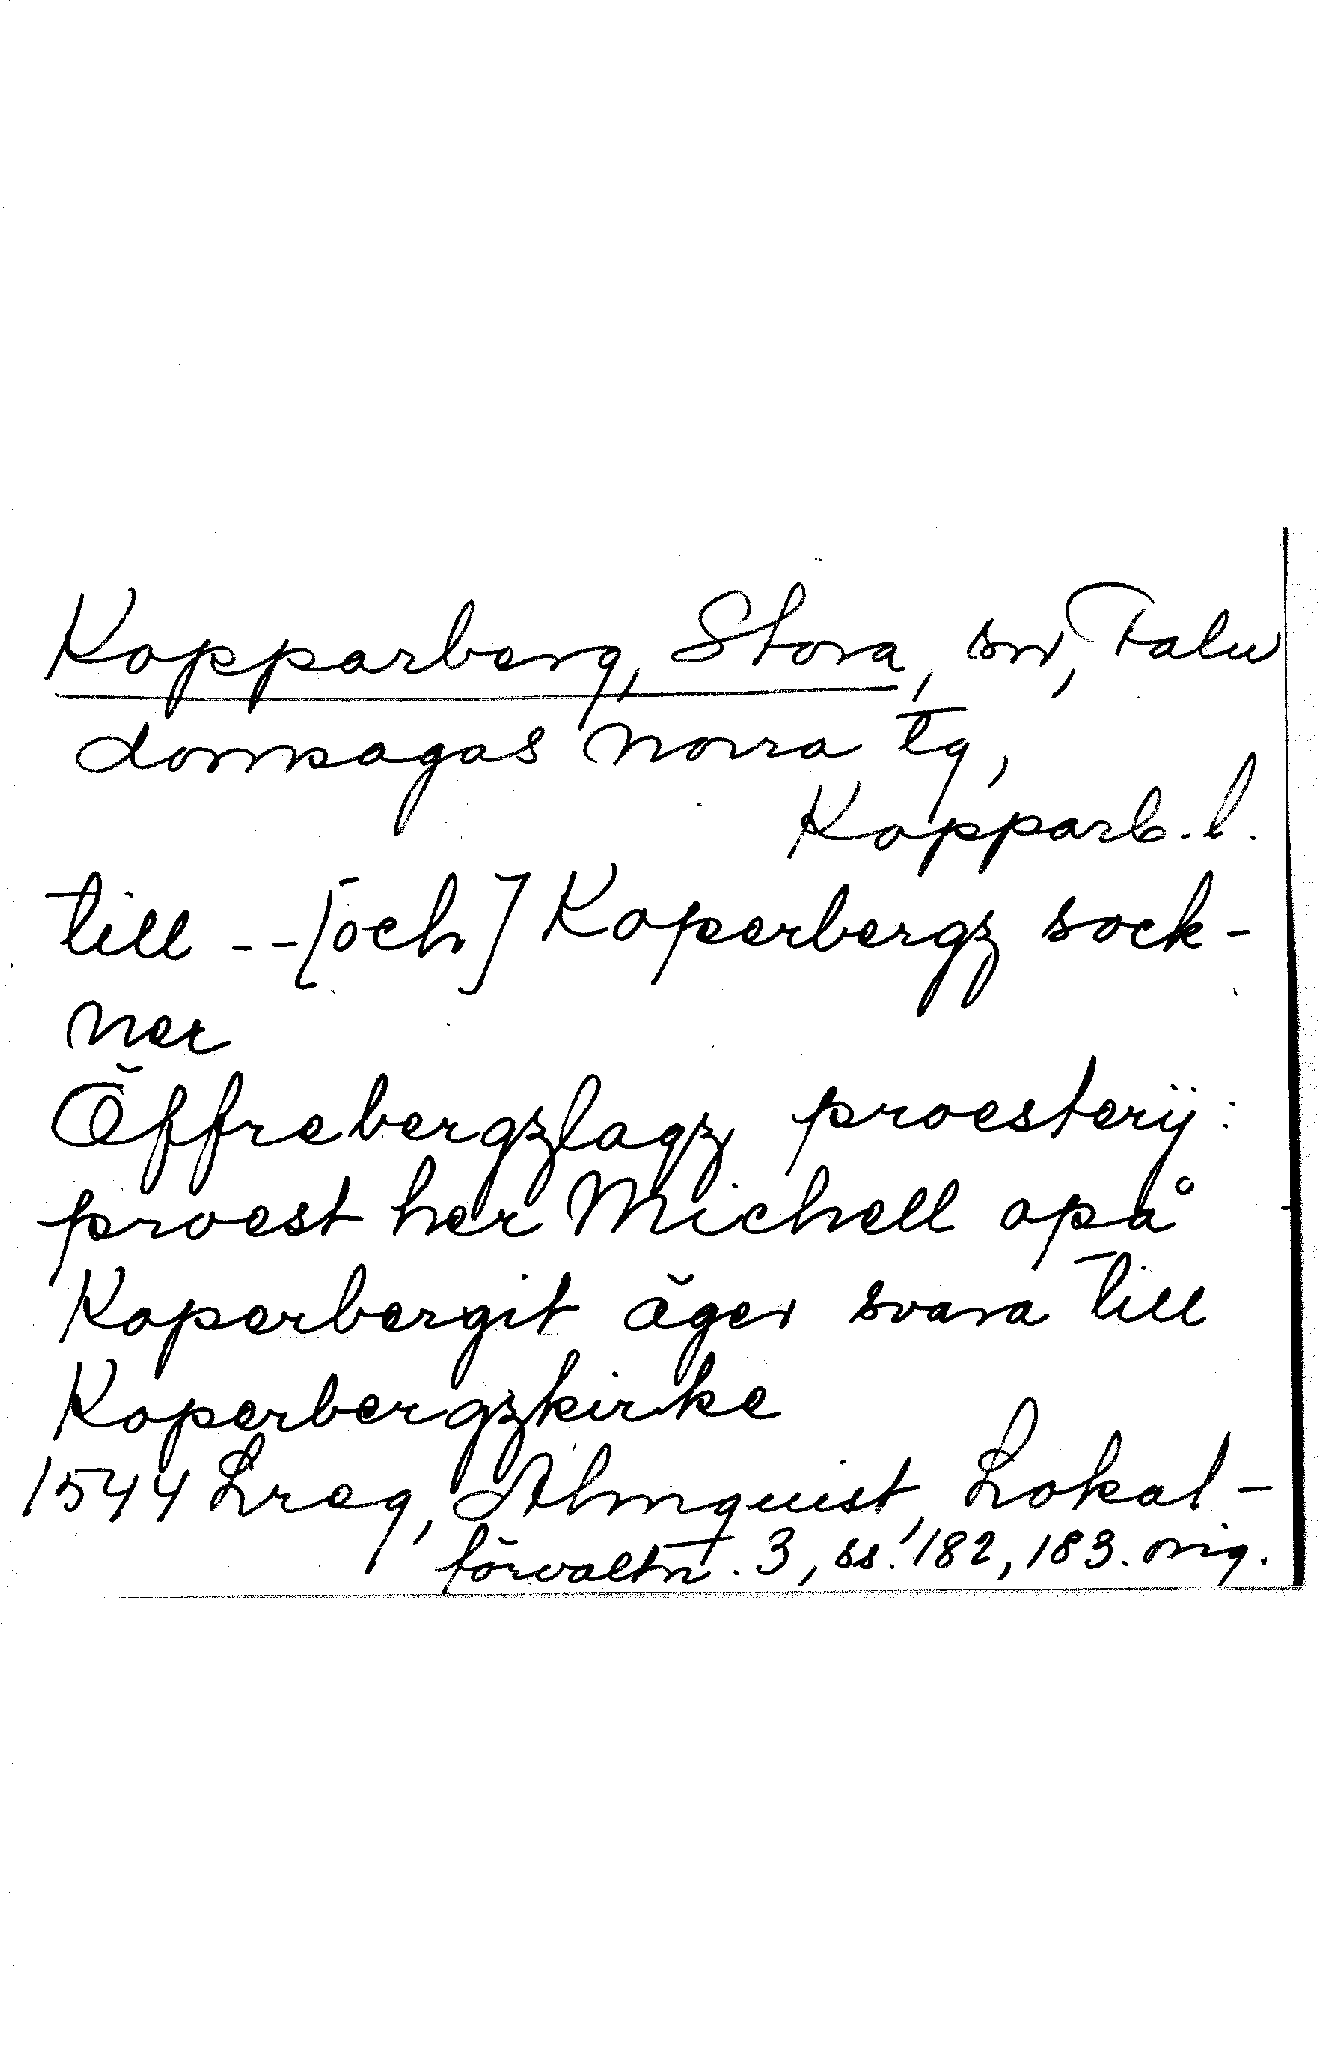 Kopparberg, Stora, sn, Falu
domsagas norra tg,
Kopparb. l.
till -- [och] Koperbergz sock-
ner
Öffrebergzlagz proesterij:
proest her Michell opå
Koperbergit äger svara till
Koperbergzkirke
1544 Lreg, Almquist, Lokal-
förvaltn. 3, ss. 182, 183. orig.